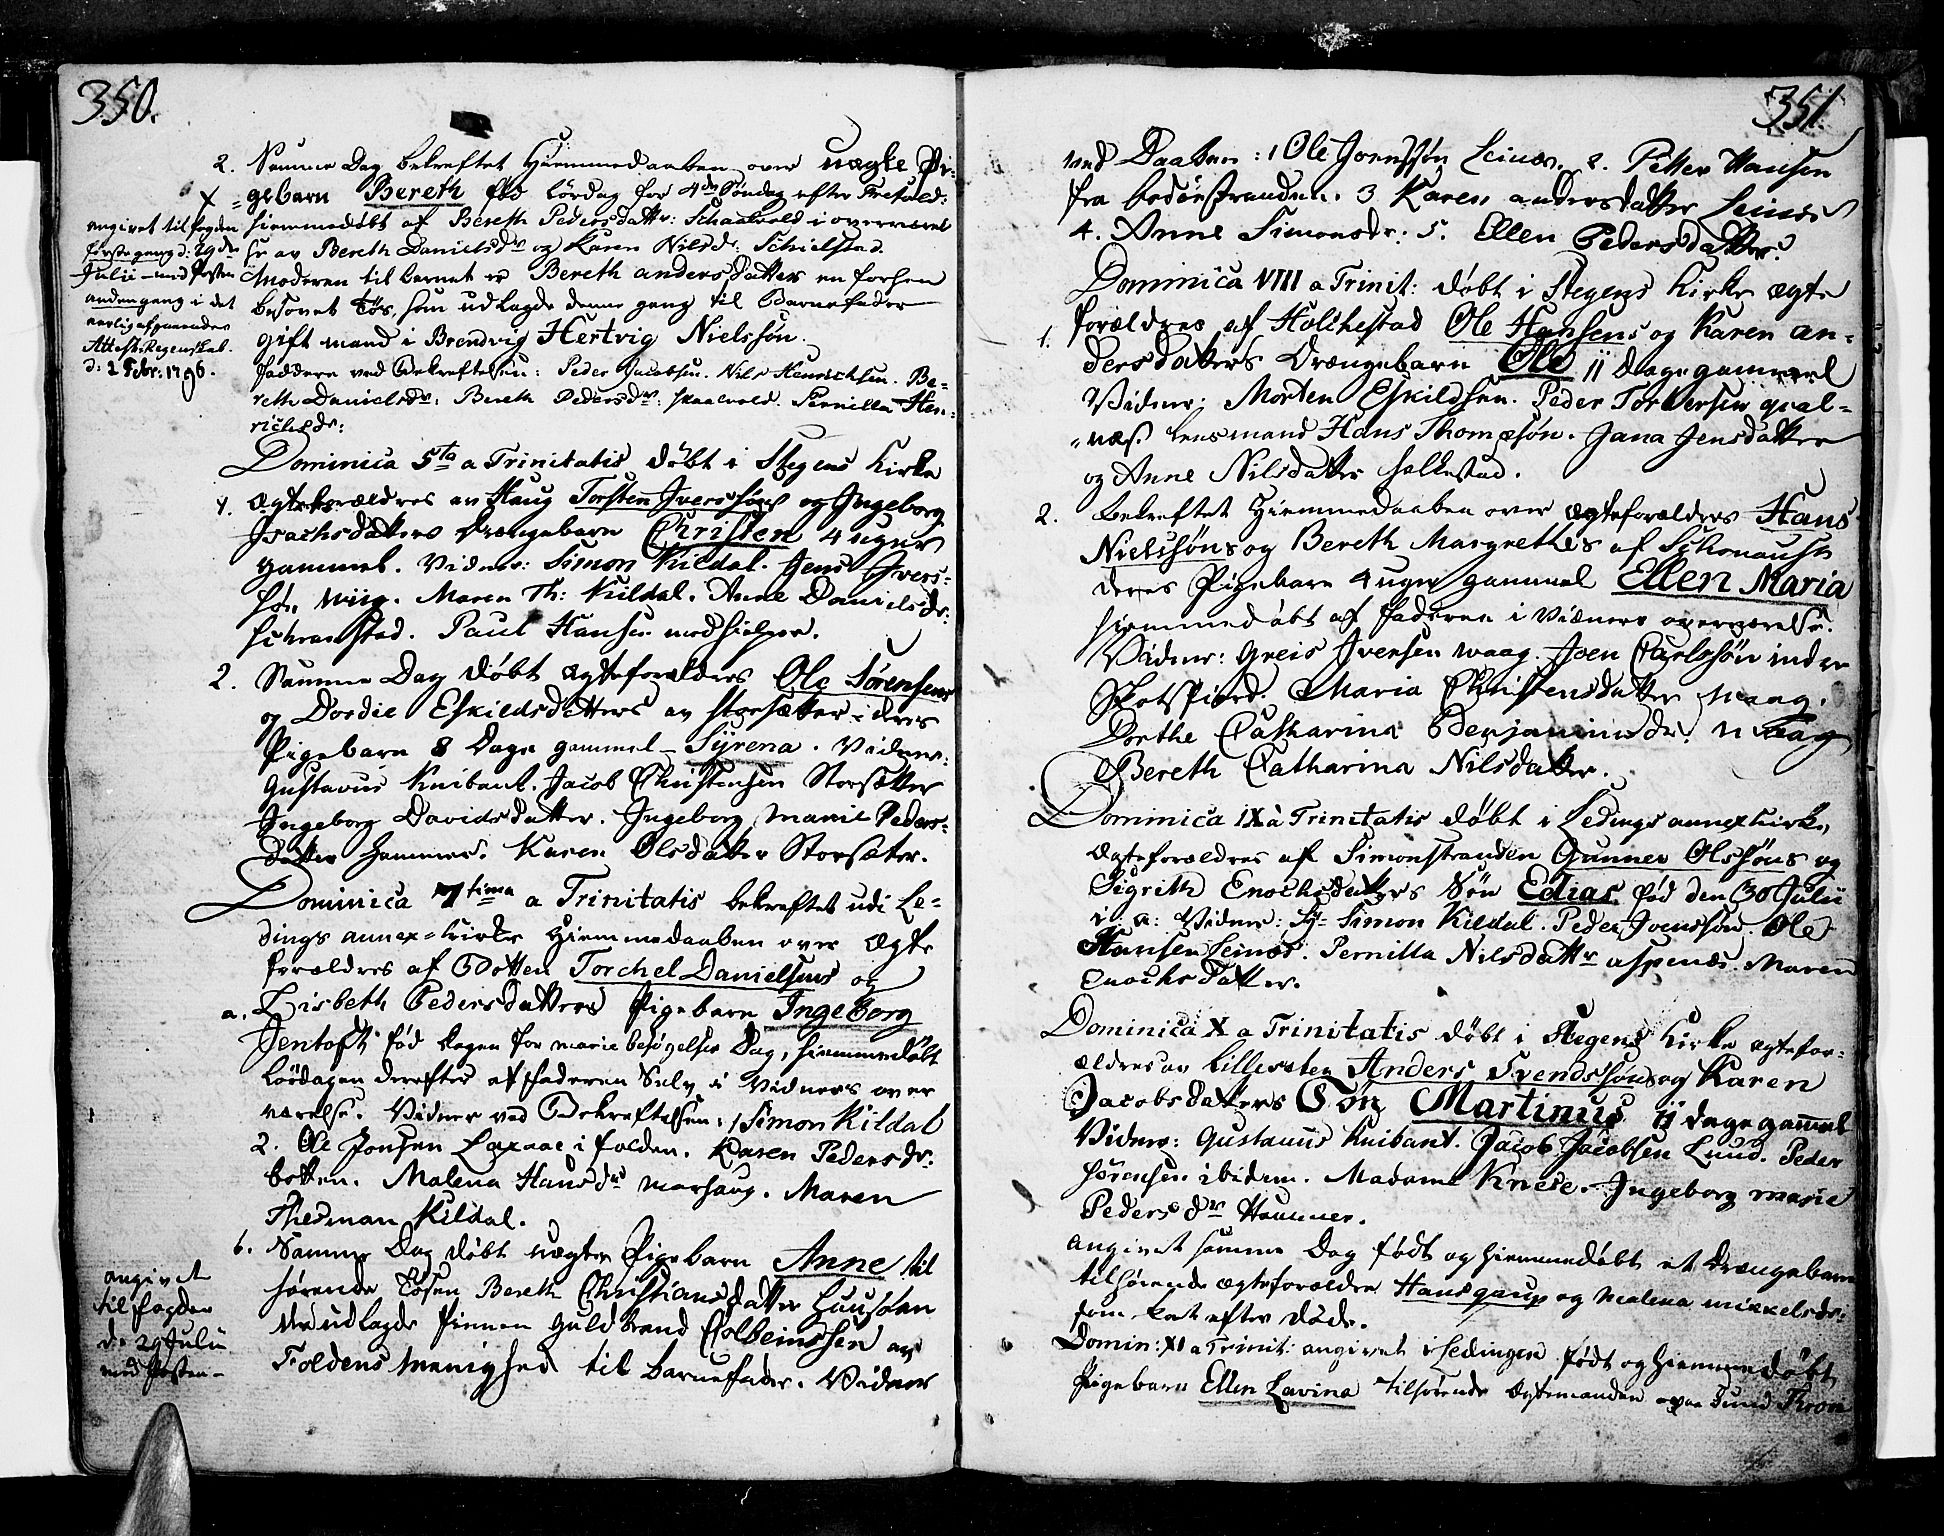 350.
2. Samme Dag bekreftet Hiemmedaaben over uægte Pi-
gebarn Bereth fød Lördag før 4de Søndag efter Trefold:
hiemmedøbt af Bereth Pedersdattr: Skaalvold i overværel
se av Bereth Danielsdr og Karen Nilsdr: Schielstad.
Moderen til barnet er Bereth andersdatter en forhen
besovet Tøs, som udlagde denne gang til Barnefader
gift mand i Brendvig Hertvig Nielssøn.
faddere ved Bekreftelsen: Peder Jacobsen. Nils Henrichsen. Be-
reth Danielsdr: Bereth Pedersdr: skaalvold. Pernilla Hen-
richsdr:
angivet til fogden
første gang d: 29de
Julii med Posten
anden gang i det
aarlig afgaaende
Attest Regenskab.
d: 2 Febr: 1796.
Dominica 5ta a Trinitatis døbt i Stegens Kirke
1. Ægteforældres av Haug Torsten Iverssøns og Ingeborg
Isachsdatters Drængebarn Christen 4 uger
gammel. Vidner: Simon Kildal. Jens Ivers-
søn wiig. Maren Th: Kildal. Anne Danielsdr:
Schranstad. Paul Hansen medhielper.
2. Samme Dag døbt Ægteforældres Ole Sörensens
og Dordie Eskildsdatters av Storsætter deres
Pigebarn 8 Dage gammel – Syrena. Vidner:
Gustavus Knibant. Jacob Christensen Storsætter
Ingeborg Davidsdatter. Ingeborg Marie Peders-
datter Hammer. Karen Olsdatter Storsæter.
Dominica 7tima a Trinitatis bekreftet udi Le-
dings annex-kirke Hiemmedaaben over Ægte
forældres af Botten Torchel Danielsens og
a. Lisbeth Pedersdatters Pigebarn Ingeborg
Jentoft fød dagen for mariæ besøgelses Dag, hiemmedøbt
Løvrdagen derefter af faderen Selv i Vidners over
værelse. Vidner ved Bekreftelsen: 1 Simon Kildal
2. Ole Jonsen Laxaae i folden. Karen Pedersdr:
botten. Malena Hansdr marhaug. Maren
Thesman Kildal.
b. Samme Dag døbt uægte Pigebarn Anne til
hørende Tøsen Bereth Christiansdatter Hausolen
der udlagde Finnen Guldbrand Colbeinssen av
Foldens Menighed til barnefader. Vidner
angivet
til fogden
d: 29 Julii
med Posten –
351
ved Daaben: 1 Ole Jonssøn Leines. 2. Petter Hansen
fra bodøestranden. 3 Karen andersdatter Leines
4. Anne Simonsdr: 5. Ellen Pedersdatter.
Dominica VIII a Trinit: døbt i Stegens Kirke ægte
1. forældres af Holchestad Ole Hansens og Karen an-
dersdatters Drængebarn Ole 11 Dage gammel
Vidner: Morten Eskildsen. Peder Torbersen qval-
næs. Lensmand Hans Thomesøn. Jana Jensdatter
og Anne Nilsdatter holkestad.
2. bekreftet Hiemmedaaben over ægteforældres Hans
Nielssøns og Bereth Margrethes af Schonausen
deres Pigebarn 4 uger gammel Ellen Maria
hiemmedøbt af faderen i vidners overværelse.
Vidner: Greis Iversen waag. Joen Carlssøn indre
Skotsfiord. Maria Christensdatter waag.
Dorthe Catharina Benjaminsdr. waag
Bereth Catharina Nilsdatter.
Dominica IX a Trinitatis døbt i Ledings annexkirke,
Ægteforældres af Simonstranden Gunner Olssøns og
Sigrith Enochsdatters Søn Edias fød den 30 Julii
i: a: Vidner: Hr Simon Kildal. Peder Ivenssøn. Ole
Hansen Leines. Pernilla Nilsdattr aspenæs. Maren
Enochsdatter.
Dominica X a Trinitatis døbt i Stegens Kirke ægtefor-
ældres av lillevaten Anders Svendssøns og Karen
Jacobsdatters Søn Martinus 11 dage gammel
Vidner: Gustavus Knibant. Jacob Jacobsen Lund. Peder
Sørensen ibidem. Madame Knese. Ingeborg marie
Pedersdr Hammer.
angivet samme Dag født og hiemmedøbt et Drængebarn
tilhørende ægteforældre Hans gaup og Malena mikkelsdr:
som kort efter døde.
Domin: XI a Trinit: angivet i Ledingen født og hiemmedøbt
Pigebarn Ellen Lavina tilhørende Ægtemanden paa Sund Thron